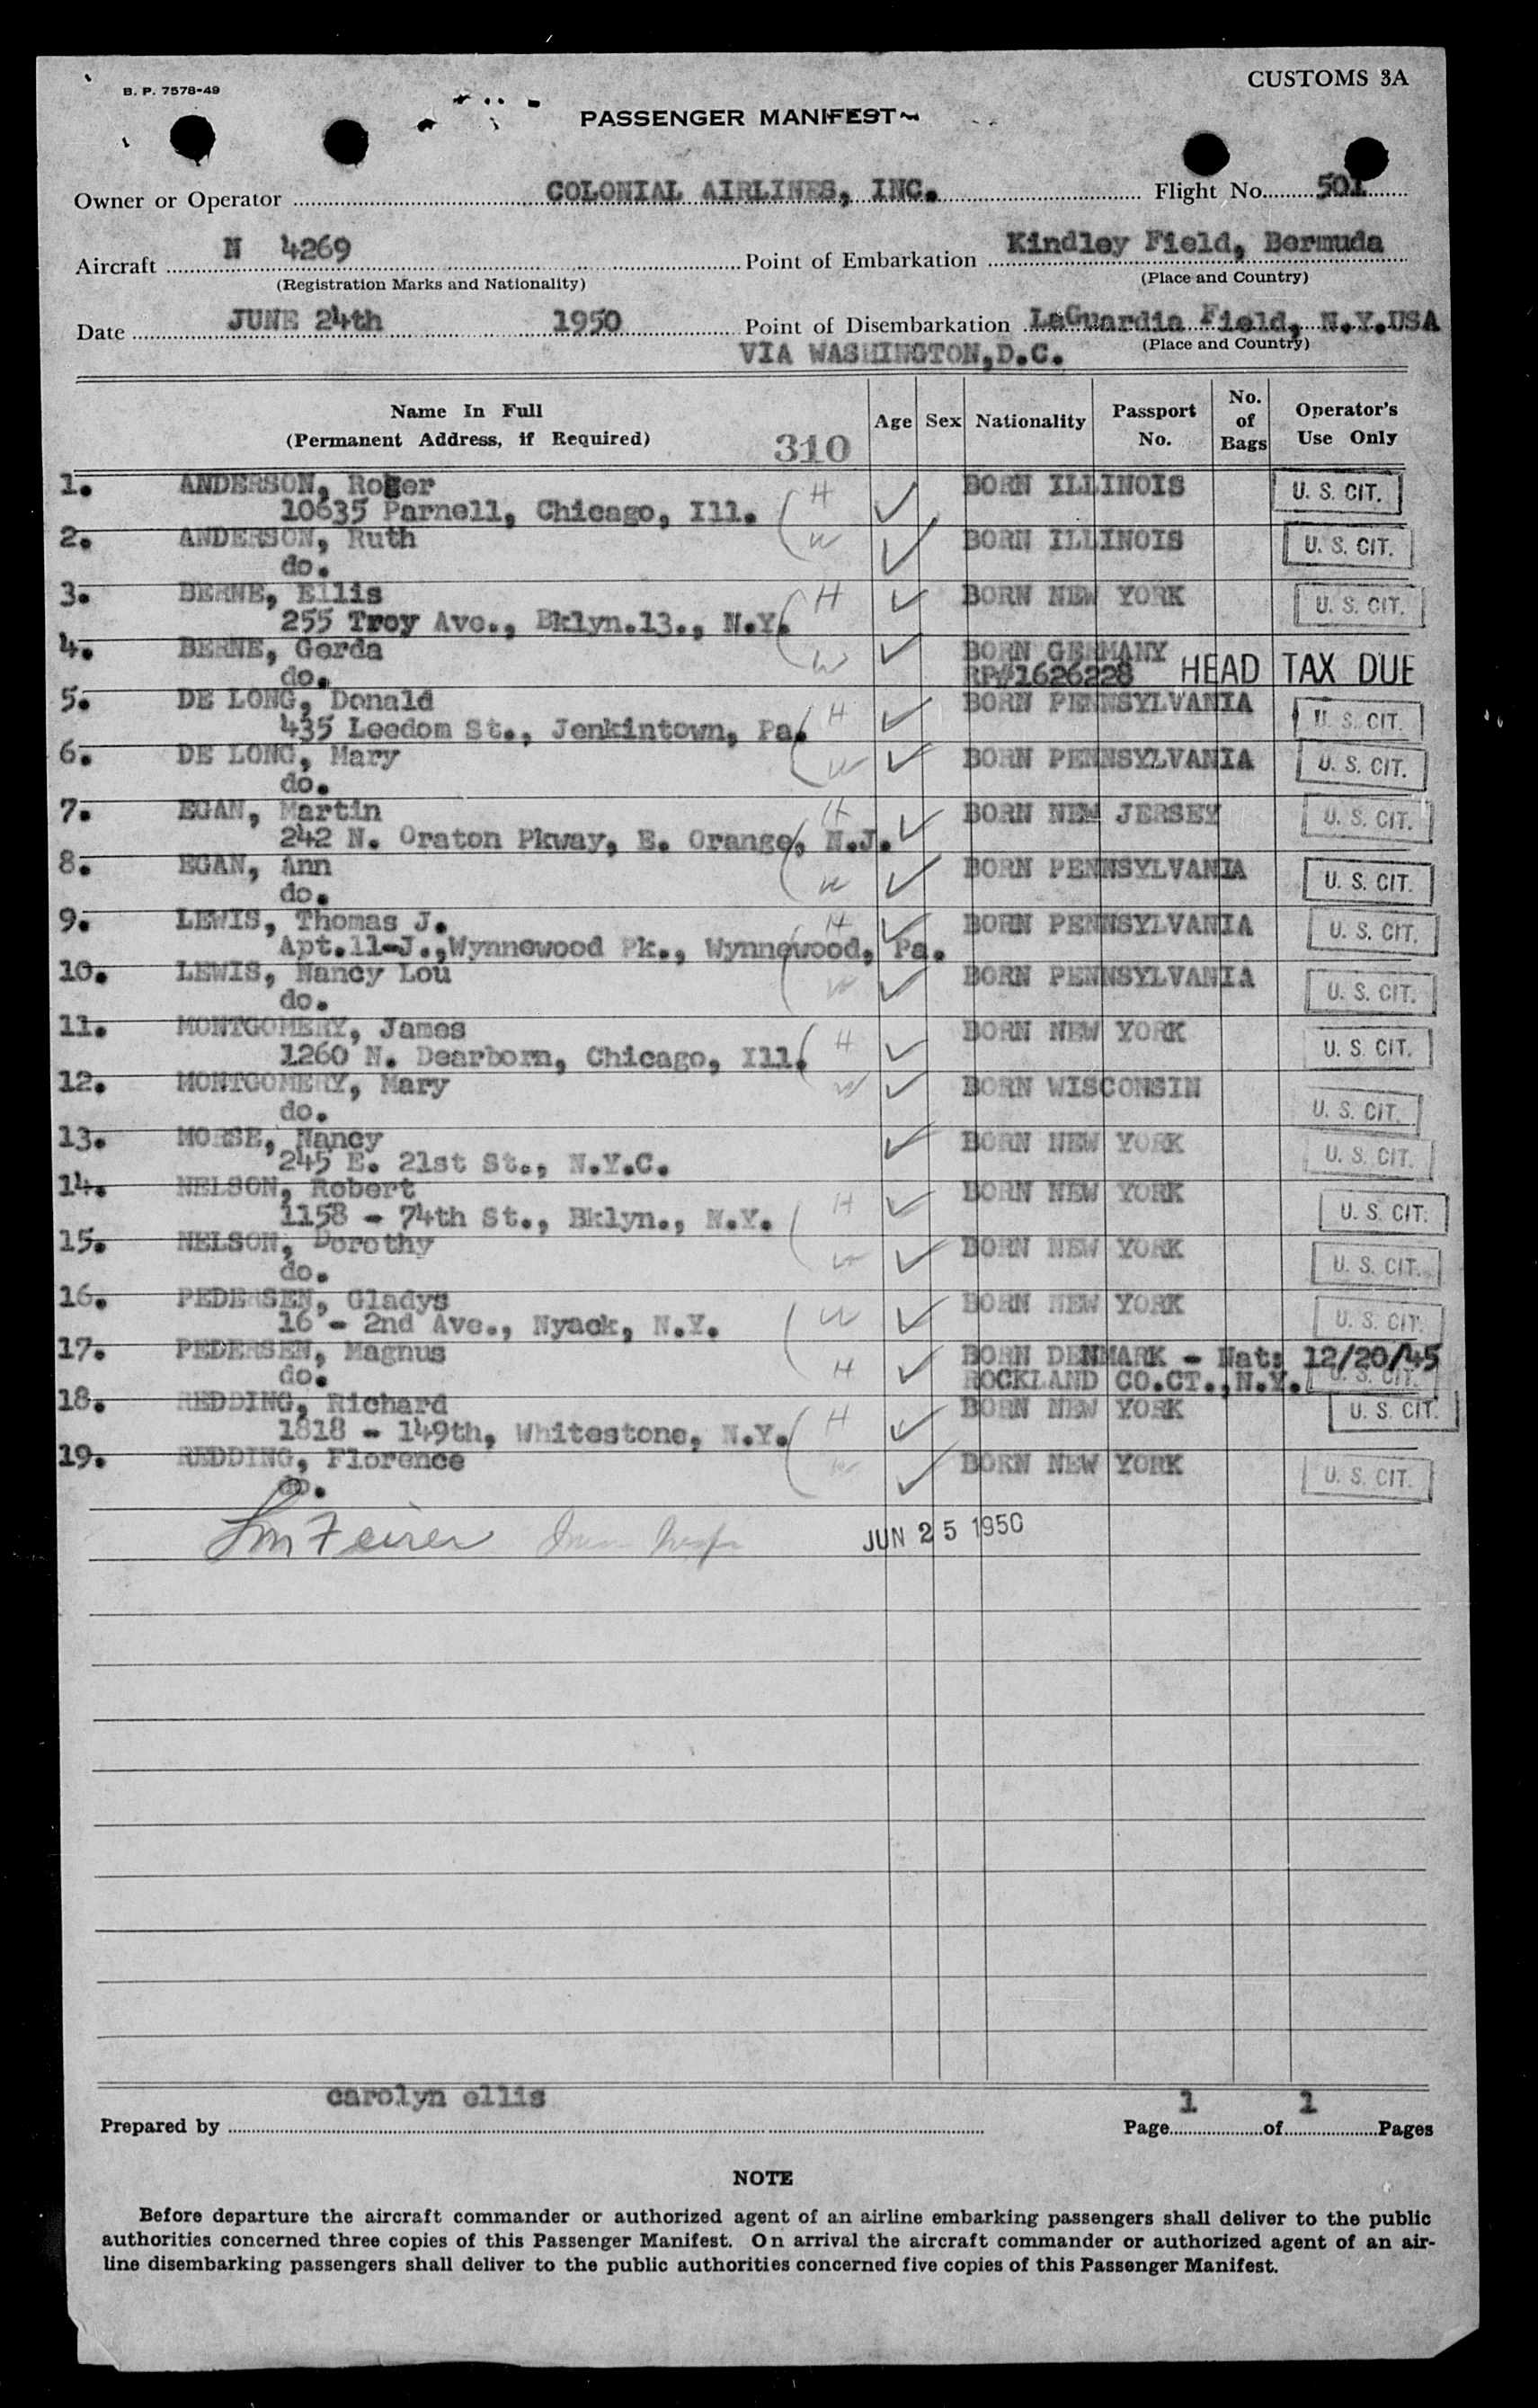 B. P. 7578-49
CUSTOMS 3A
PASSENGER MANIFEST
Owner or Operator COLONIAL AIRLINES, INC. Flight No. 501
Aircraft N 4269 Point of Embarkation Kindley Field, Bermuda
(Registration Marks and Nationality) (Place and Country)
Date JUNE 24th 1950 Point of Disembarkation LaGuardia Field, N.Y.USA
VIA WASHINGTON,D.C. (Place and Country)
Name In Full (Permanent Address, if Required) 310 Age Sex Nationality Passport No. No. of Bags Operator's Use Only
1. ANDERSON, Roger H BORN ILLINOIS U. S. CIT.
10635 Parnell, Chicago, Ill.
2. ANDERSON, Ruth W BORN ILLINOIS U. S. CIT.
do.
3. BERNE, Ellis H BORN NEW YORK U. S. CIT.
255 Troy Ave., Bklyn.13., N.Y.
4. BERNE, Gerda W BORN GERMANY
do. RP#1626228 HEAD TAX DUE
5. DE LONG, Donald H BORN PENNSYLVANIA U. S. CIT.
435 Leedom St., Jenkintown, Pa.
6. DE LONG, Mary W BORN PENNSYLVANIA U. S. CIT.
do.
7. EGAN, Martin H BORN NEW JERSEY U. S. CIT.
242 N. Oraton Pkway, E. Orange, N.J.
8. EGAN, Ann W BORN PENNSYLVANIA U. S. CIT.
do.
9. LEWIS, Thomas J. H BORN PENNSYLVANIA U. S. CIT.
Apt.11-J.,Wynnewood Pk., Wynnewood, Pa.
10. LEWIS, Nancy Lou W BORN PENNSYLVANIA U. S. CIT.
do.
11. MONTGOMERY, James H BORN NEW YORK U. S. CIT.
1260 N. Dearborn, Chicago, Ill.
12. MONTGOMERY, Mary W BORN WISCONSIN U. S. CIT.
do.
13. MORSE, Nancy BORN NEW YORK U. S. CIT.
245 E. 21st St., N.Y.C.
14. NELSON, Robert H BORN NEW YORK U. S. CIT.
1158 - 74th St., Bklyn., N.Y.
15. NELSON, Dorothy W BORN NEW YORK U. S. CIT.
do.
16. PEDERSEN, Gladys W BORN NEW YORK U. S. CIT.
16 - 2nd Ave., Nyack, N.Y.
17. PEDERSEN, Magnus H BORN DENMARK - Nat: 12/20/45
do. ROCKLAND CO.CT.,N.Y. U. S. CIT.
18. REDDING, Richard H BORN NEW YORK U. S. CIT.
1818 - 149th, Whitestone, N.Y.
19. REDDING, Florence W BORN NEW YORK U. S. CIT.
do.
JUN 25 1950
carolyn ellis
Prepared by Page 1 of 1 Pages
NOTE
Before departure the aircraft commander or authorized agent of an airline embarking passengers shall deliver to the public
authorities concerned three copies of this Passenger Manifest. On arrival the aircraft commander or authorized agent of an air-
line disembarking passengers shall deliver to the public authorities concerned five copies of this Passenger Manifest.